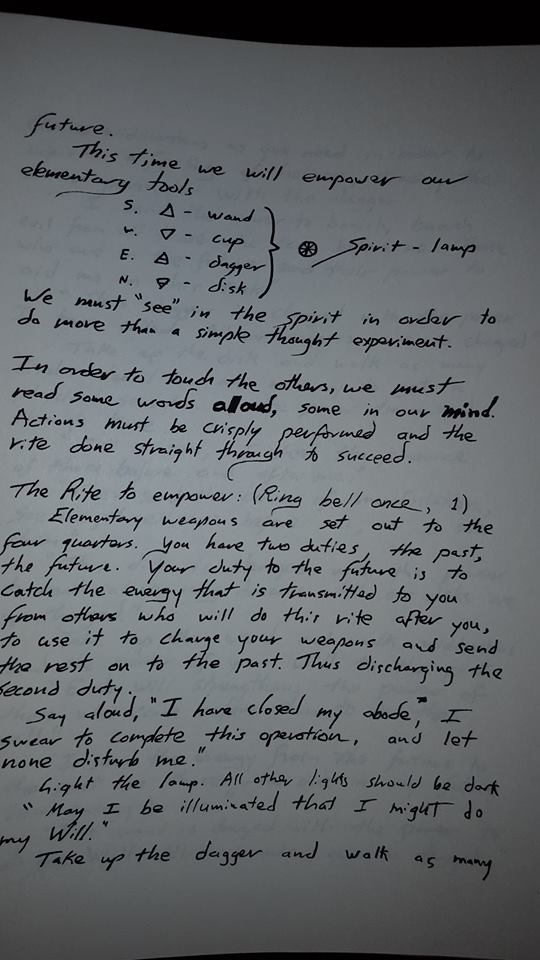 future.
This time we will empower our
elementary tools
S. 🜂 - wand
W. 🜄 - cup
E. 🜁 - dagger
N. 🜃 - disk
⊛ Spirit - lamp
We must "see" in the spirit in order to
do more than a simple thought experiment.
In order to touch the others, we must
read some words aloud, some in our mind.
Actions must be crisply performed and the
rite done straight through to succeed.
The Rite to empower: (Ring bell once, 1)
Elementary weapons are set out to the
four quarters. You have two duties, the past,
the future. Your duty to the future is to
catch the energy that is transmitted to you
from others who will do this rite after you,
to use it to charge your weapons and send
the rest on to the past. Thus discharging the
second duty.
Say aloud, "I have closed my abode," I
swear to complete this operation, and let
none disturb me."
Light the lamp. All other lights should be dark
"May I be illuminated that I might do
my Will."
Take up the dagger and walk as many